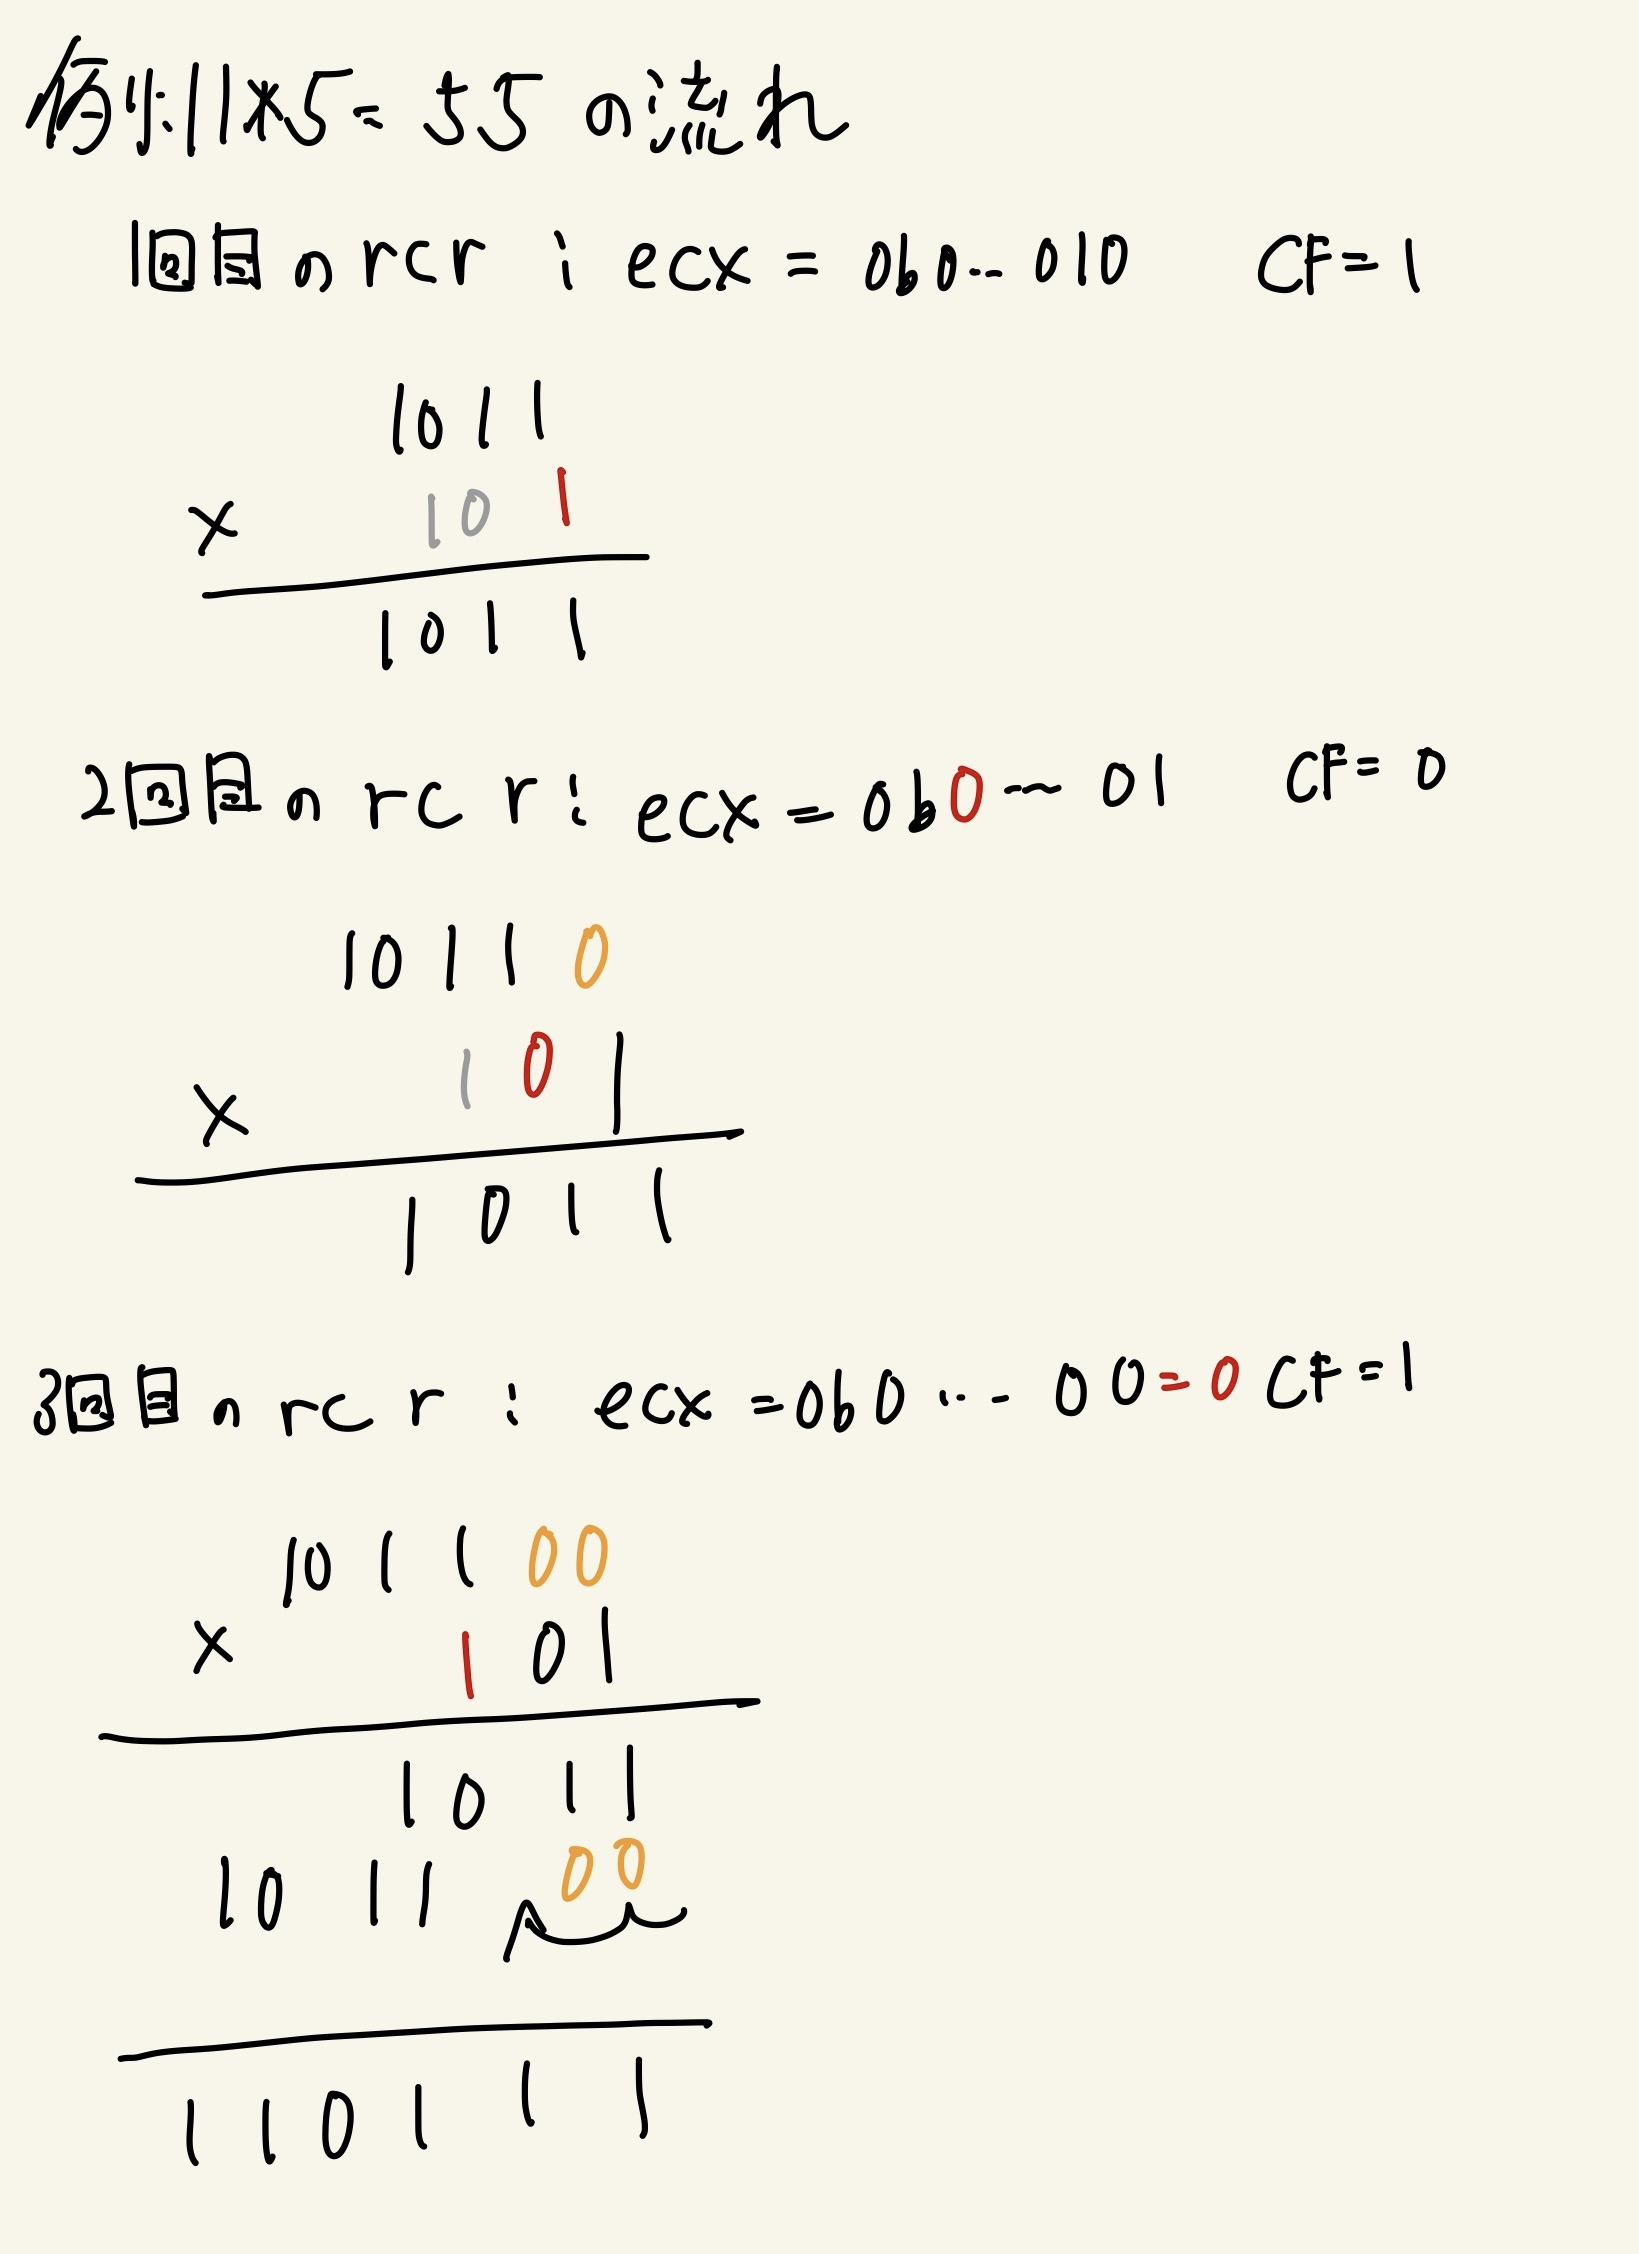 例:11×5=55の流れ
1回目のrcr : ecx = 0b0...010 CF=1
1011
× 101
1011
2回目のrcr : ecx = 0b0...01 CF=0
10110
× 101
1011
3回目のrcr : ecx = 0b0...00=0 CF=1
101100
× 101
1011
101100
110111